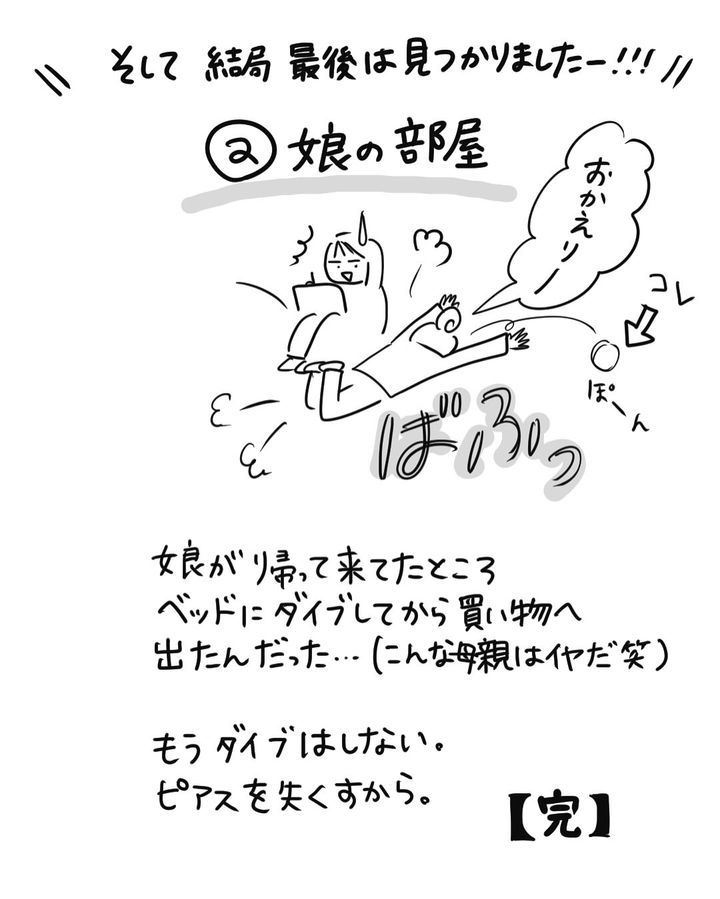 そして 結局 最後は見つかりましたー!!!
② 娘の部屋
おかえりー
コレ
ぽーん
ばふっ
娘が帰って来てたところ
ベッドにダイブしてから買い物へ
出たんだった…(こんな母親はイヤだ笑)
もうダイブはしない。
ピアスを失くすから。
【完】